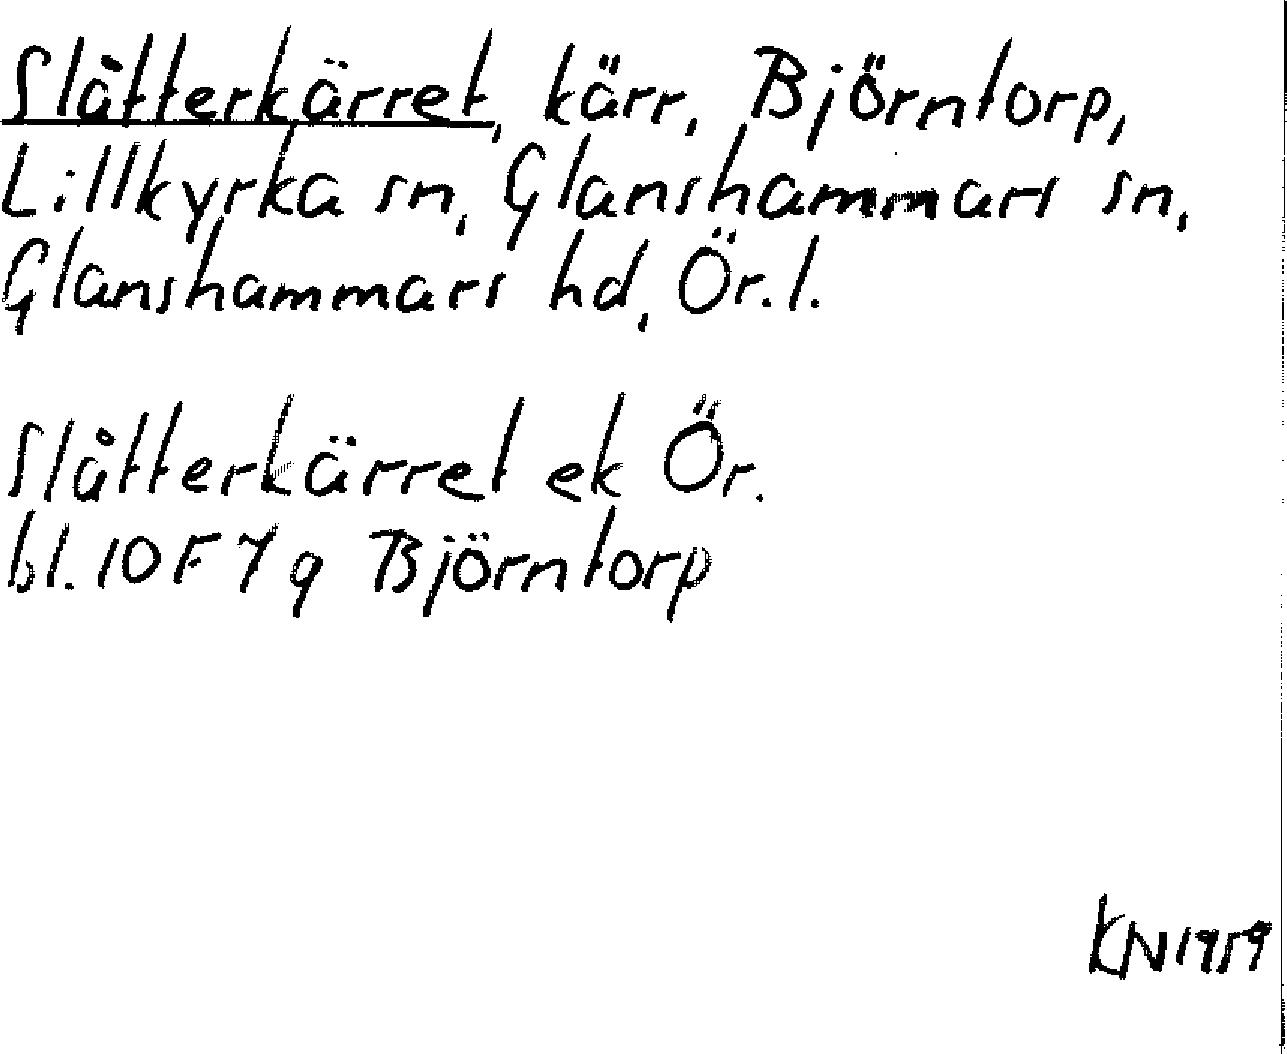 Slåtterkärret, kärr, Björntorp,
Lillkyrka sn, Glanshammars sn,
Glanshammars hd, Ör. l.
Slåtterkärret ek Ör.
bl. 10 F 7 g Björntorp
KN 1959